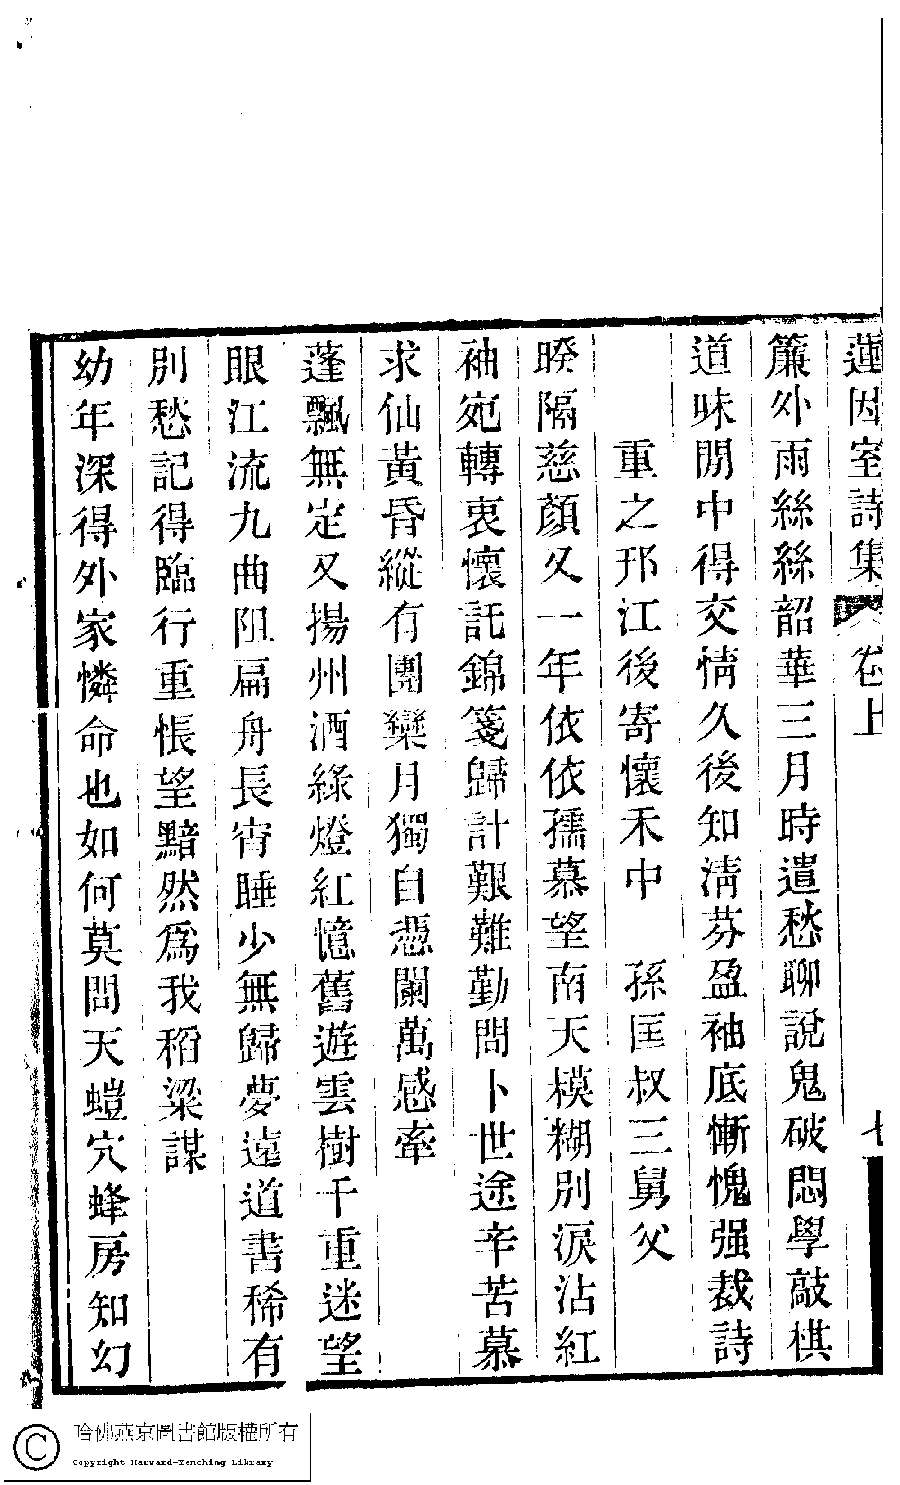 蓮因室詩集 卷上 七
簾外雨絲絲韶華三月時遣愁聊說鬼破悶學敲棋
道味閒中得交情久後知淸芬盈袖底慚愧强裁詩
重之邗江後寄懷禾中 孫匡叔三舅父
暌隔慈顏又一年依依孺慕望南天模糊別淚沾紅
袖宛轉衷懷託錦箋歸計艱難勤問卜世途辛苦慕
求仙黃昏縱有團欒月獨自憑闌萬感牽
蓬飄無定又揚州酒綠燈紅憶舊遊雲樹千重迷望
眼江流九曲阻扁舟長宵睡少無歸夢遠道書稀有
別愁記得臨行重悵望黯然爲我稻粱謀
幼年深得外家憐命也如何莫問天螘穴蜂房知幻
哈佛燕京圖書館版權所有
Copyright Harvard-Yenching Library